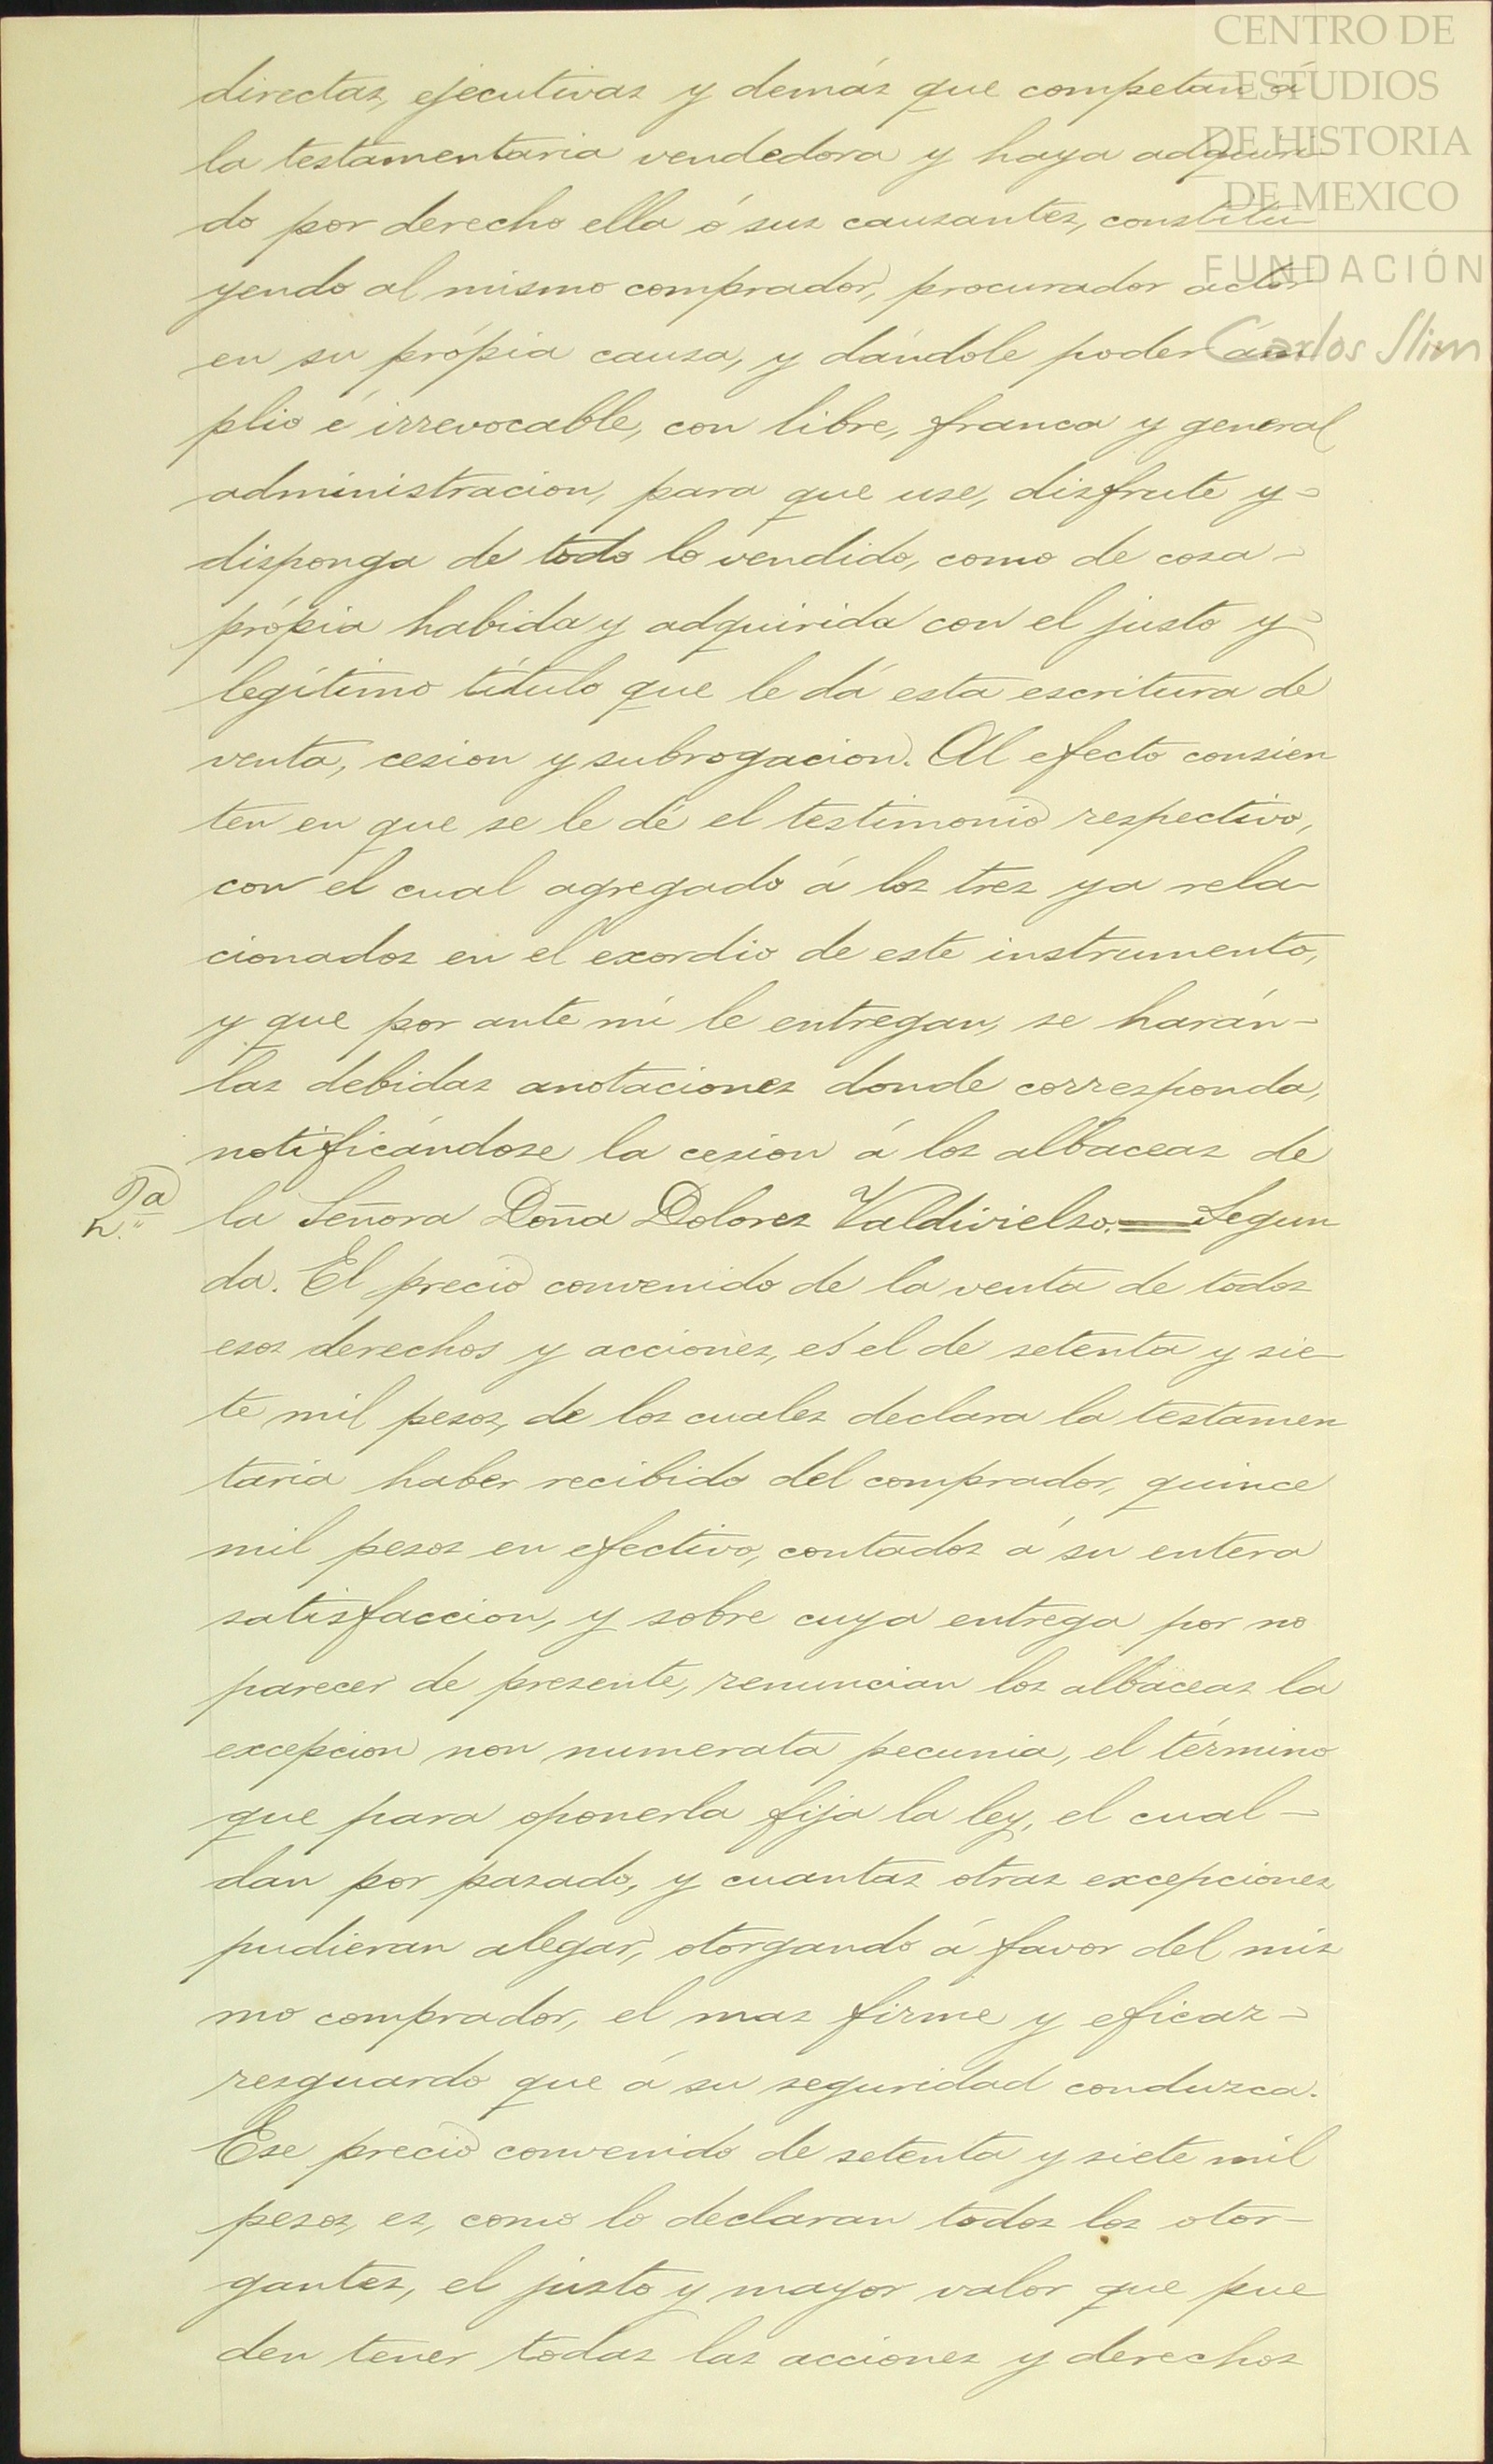 CENTRO DE
ESTUDIOS
DE HISTORIA
DE MEXICO
FUNDACIÓN
Carlos Slim
directas, ejecutivas y demás que competan á
la testamentaria vendedora y haya adquiri-
do por derecho ella ó sus causantes, constitu-
yendo al mismo comprador, procurador actor
en su própia causa, y dándole poder ám
plio é irrevocable, con libre, franca y general
administracion, para que use, disfrute y-
disponga de todo lo vendido, como de cosa-
própia habida y adquirida con el justo y-
legítimo título que le dá esta escritura de
venta, cesion y subrogacion. Al efecto consien
ten en que se le dé el testimonio respectivo,
con el cual agregado á los tres ya rela-
cionados en el exordio de este instrumento,
y que por ante mí le entregan, se harán-
las debidas anotaciones donde corresponda,
notificándose la cesion á los albaceas de
2.ª la Señora Doña Dolores Valdivielso.═Segun
da. El precio convenido de la venta de todos
esos derechos y acciones, es el de setenta y sie-
te mil pesos, de los cuales declara la testamen
taria haber recibido del comprador, quince
mil pesos en efectivo, contados á su entera
satisfaccion, y sobre cuya entrega por no
parecer de presente, renuncian los albaceas la
excepcion non numerata pecunia, el término
que para oponerla fija la ley, el cual-
dan por pasado, y cuantas otras excepciones
pudieran alegar, otorgando á favor del mis
mo comprador, el mas firme y eficaz-
resguardo que á su seguridad conduzca.
Ese precio convenido de setenta y siete mil
pesos, es, como lo declaran todos los otor-
gantes, el justo y mayor valor que pue
den tener todas las acciones y derechos